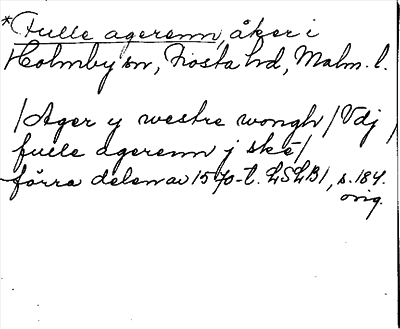 *Fulle agerenn, åker i
Holmby sn, Frosta hd, Malm. l.
/Ager y westre wongh/ Vdj /
fulle agerenn j ske/
förra delen av 1570-t. LSLB1, s. 184.
orig.